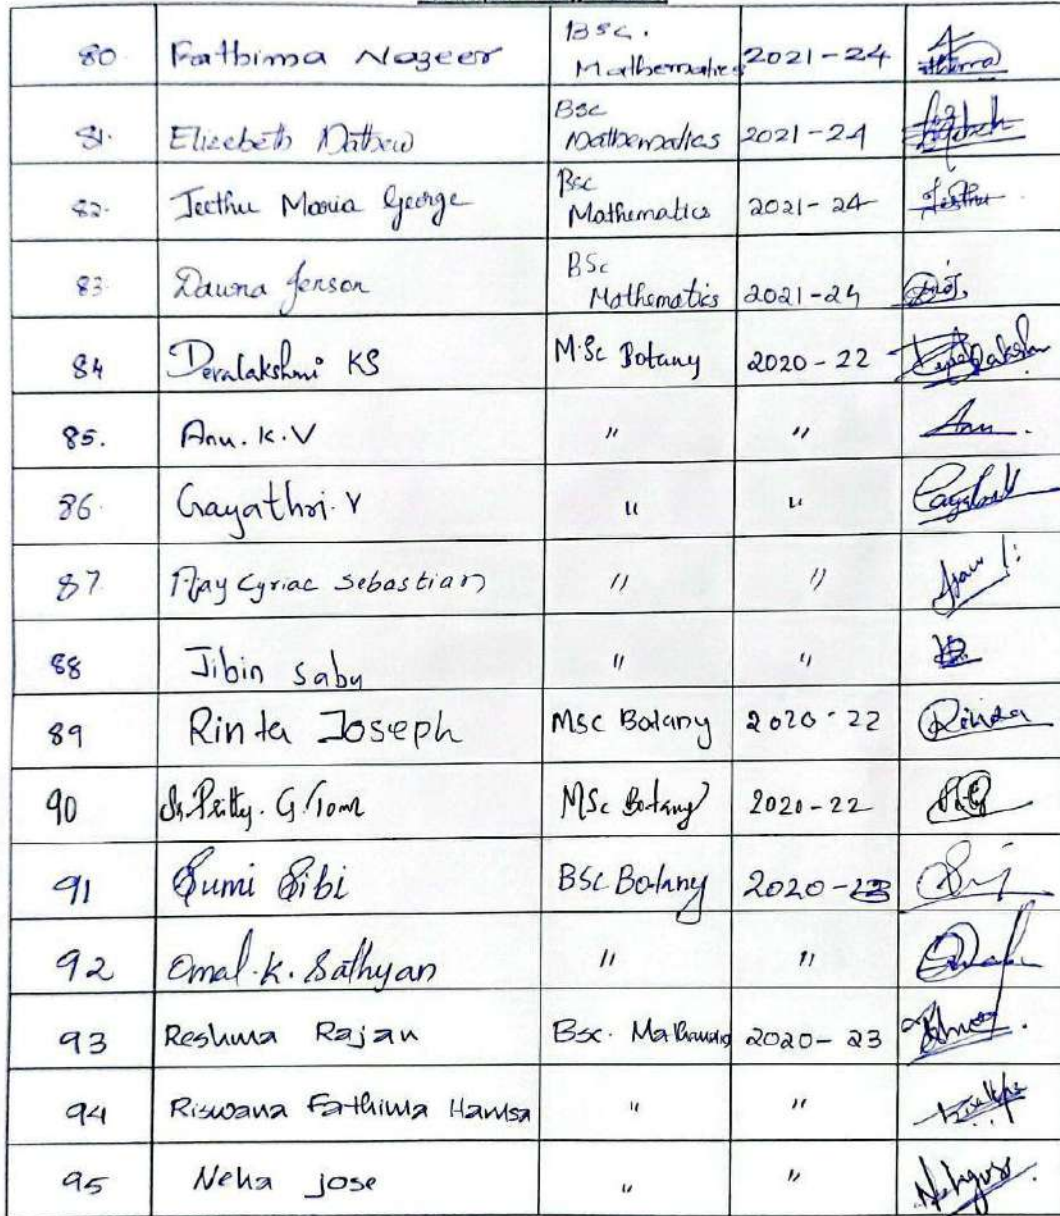 80. Fathima Nazeer BSc. Mathematics 2021-24 Fathima
81. Elizebeth Mathew BSc Mathematics 2021-24
82. Jeethu Maria George BSc Mathematics 2021-24 Jeethu
83. Dawna Jenson BSc Mathematics 2021-24
84 Devalakshmi KS M.Sc Botany 2020-22 Devalakshmi
85. Anu. K.V " " Anu.
86. Gayathri. V " "
87. Ajay Cyriac Sebastian " "
88 Jibin Sabu " "
89 Rinta Joseph MSc Botany 2020-22 Rinta
90 Sr. Pretty. G. Tom MSc Botany 2020-22
91 Sumi Sibi BSc Botany 2020-23
92 Omal. K. Sathyan " "
93 Reshma Rajan Bsc. Mathematics 2020-23
94 Riswana Fathima Hamsa " "
95 Neha Jose " "